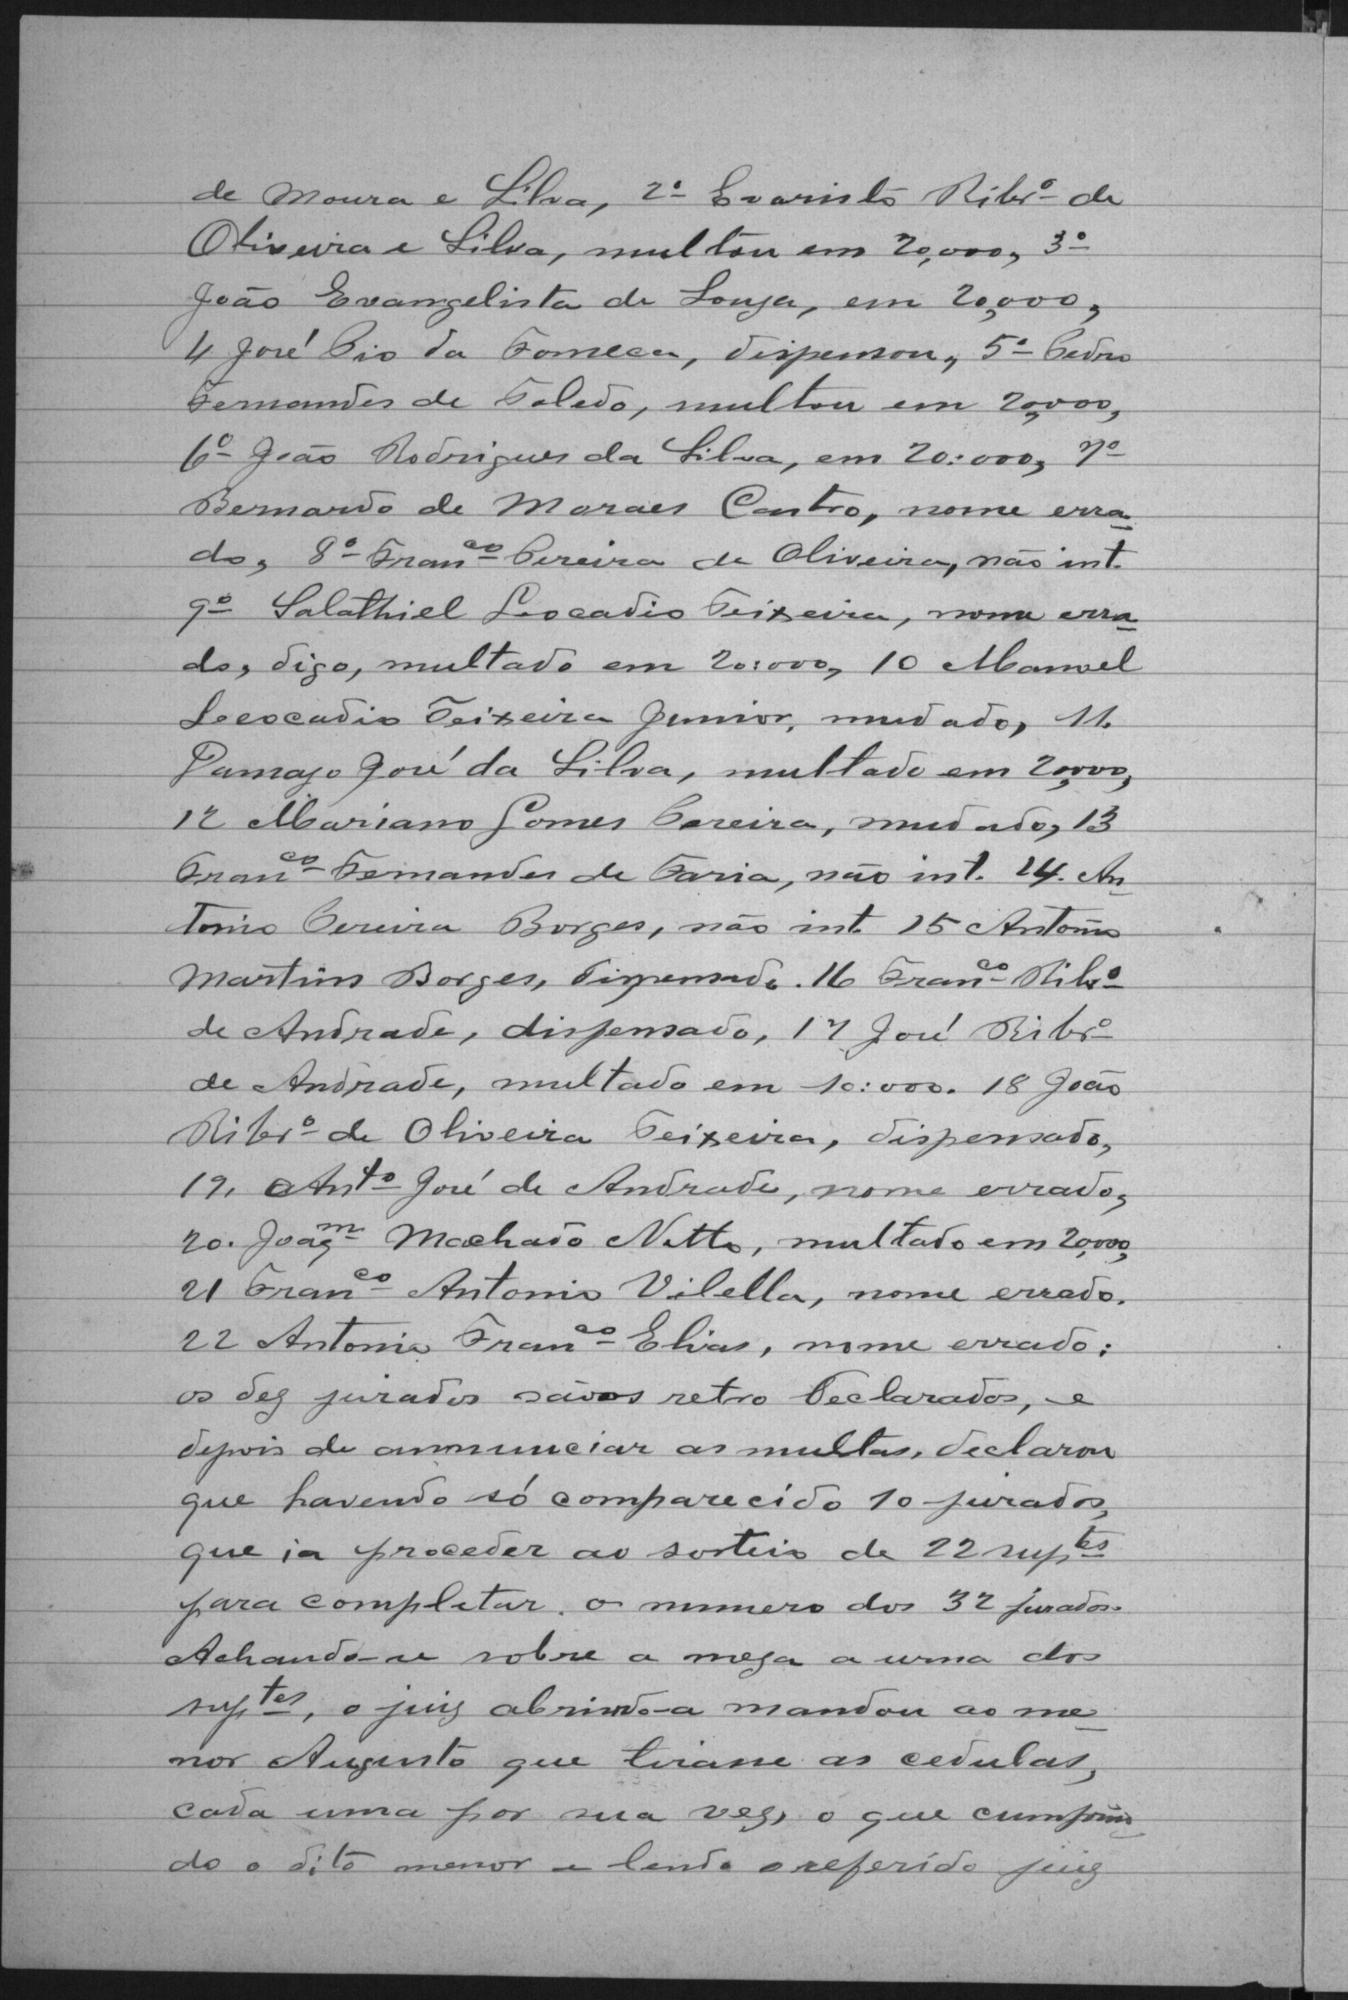 de Moura e Silva, 2º Evaristo Ribrº de
Oliveira e Silva, multou em 20,000, 3º
João Evangelista de Souza, em 20,000,
4 José Pio da Fonseca, dispensou, 5º Pedro
Fernandes de Toledo, multou em 20,000,
6º João Rodrigues da Silva, em 20:000, 7º
Bernardo de Moraes Castro, nome erra-
do, 8º Franco Pereira de Oliveira, não int.
9º Salathiel Leocadio Teixeira, nome erra-
do, digo, multado em 20:000, 10 Manoel
Leocadio Teixeira Junior, mudado, 11.
Damazo José da Silva, multado em 20,000,
12 Mariano Gomes Pereira, mudado, 13
Franco Fernandes de Faria, não int. 14. An-
tonio Pereira Borges, não int. 15 Antonio
Martins Borges, dispensado. 16 Franco Ribrº
de Andrade, dispensado, 17 José Ribrº
de Andrade, multado em 10:000. 18 João
Ribrº de Oliveira Teixeira, dispensado,
19. Antº José de Andrade, nome errado,
20. Joaqm Machado Netto, multado em 20,000,
21 Franco Antonio Vilella, nome errado.
22 Antonio Franco Elias, nome errado;
os dez jurados sãoos retro declarados, e
depois de annunciar as multas, declarou
que havendo só comparecido 10 jurados,
que ia proceder ao sorteio de 22 suptes
para completar o numero dos 32 jurados.
Achando-se sobre a meza a urna dos
suptes, o juiz abrindo-a mandou ao me-
nor Augusto que tirasse as cedulas,
cada uma por sua vez, o que cumprin-
do o dito menor e lendo o referido juiz